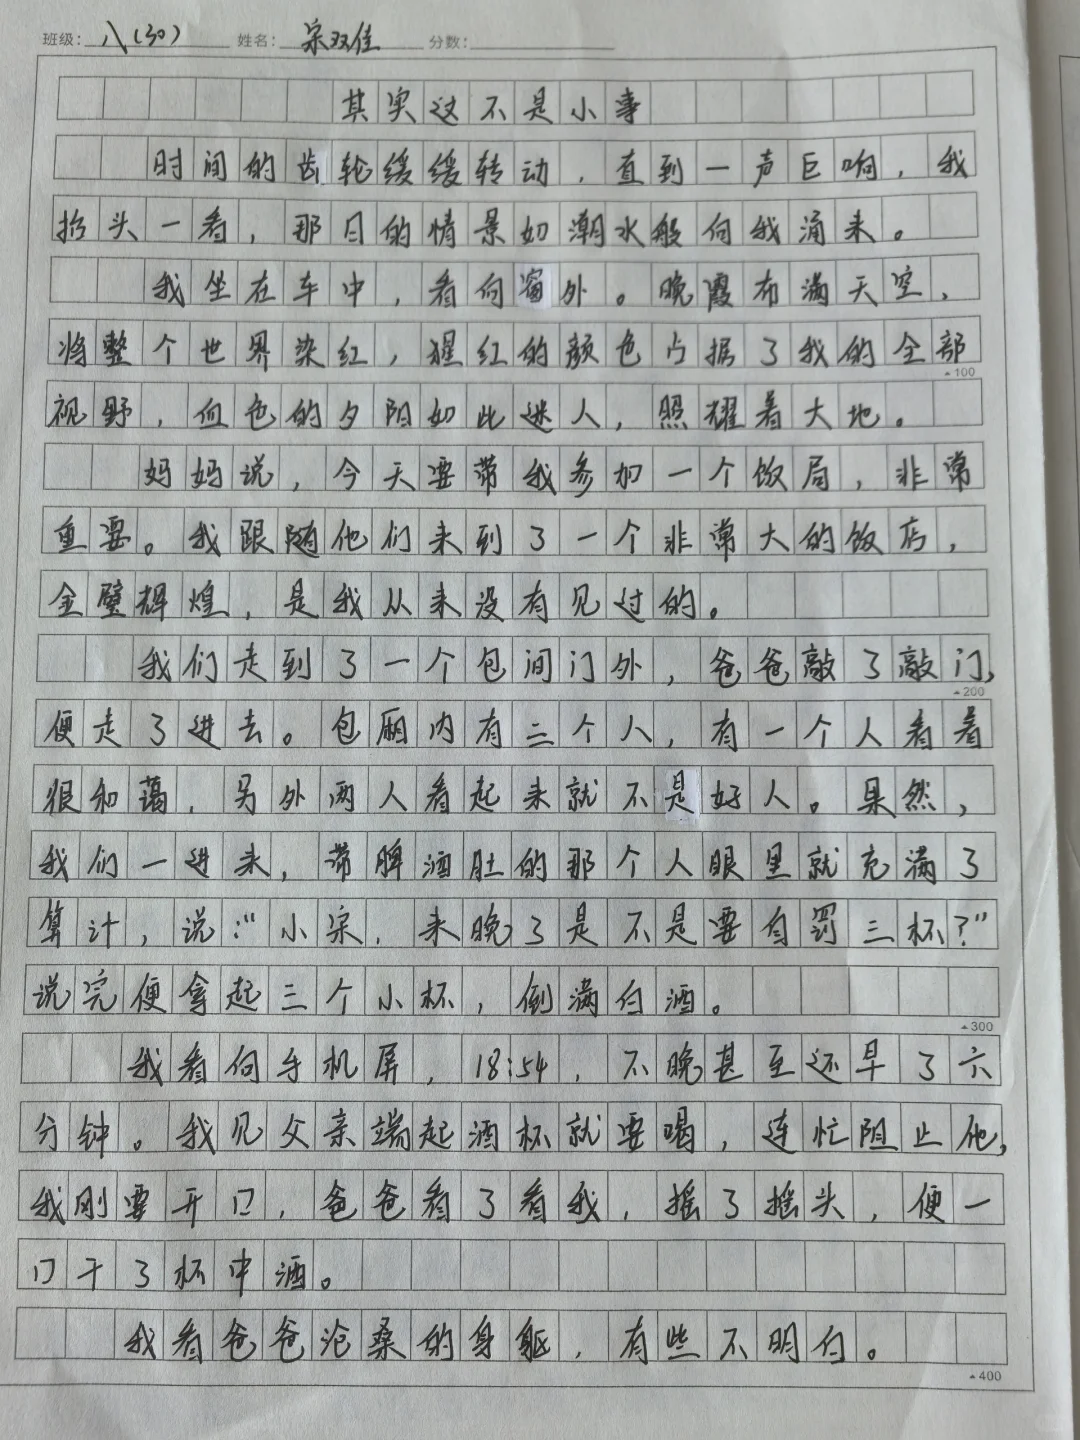 班级：八(30) 姓名：宋双佳 分数：
其实这不是小事
时间的齿轮缓缓转动，直到一声巨响，我
抬头一看，那日的情景如潮水般向我涌来。
我坐在车中，看向窗外。晚霞布满天空，
将整个世界染红，猩红的颜色占据了我的全部
100
视野，血色的夕阳如此迷人，照耀着大地。
妈妈说，今天要带我参加一个饭局，非常
重要。我跟随他们来到了一个非常大的饭店，
金壁辉煌，是我从来没有见过的。
我们走到了一个包间门外，爸爸敲了敲门，
200
便走了进去。包厢内有三个人，有一个人看着
很和蔼，另外两人看起来就不是好人。果然，
我们一进来，带脾酒肚的那个人眼里就充满了
算计，说：“小宋，来晚了是不是要自罚三杯？”
说完便拿起三个小杯，倒满白酒。
300
我看向手机屏，18:54，不晚甚至还早了六
分钟。我见父亲端起酒杯就要喝，连忙阻止他，
我刚要开口，爸爸看了看我，摇了摇头，便一
口干了杯中酒。
我看爸爸沧桑的身躯，有些不明白。
400